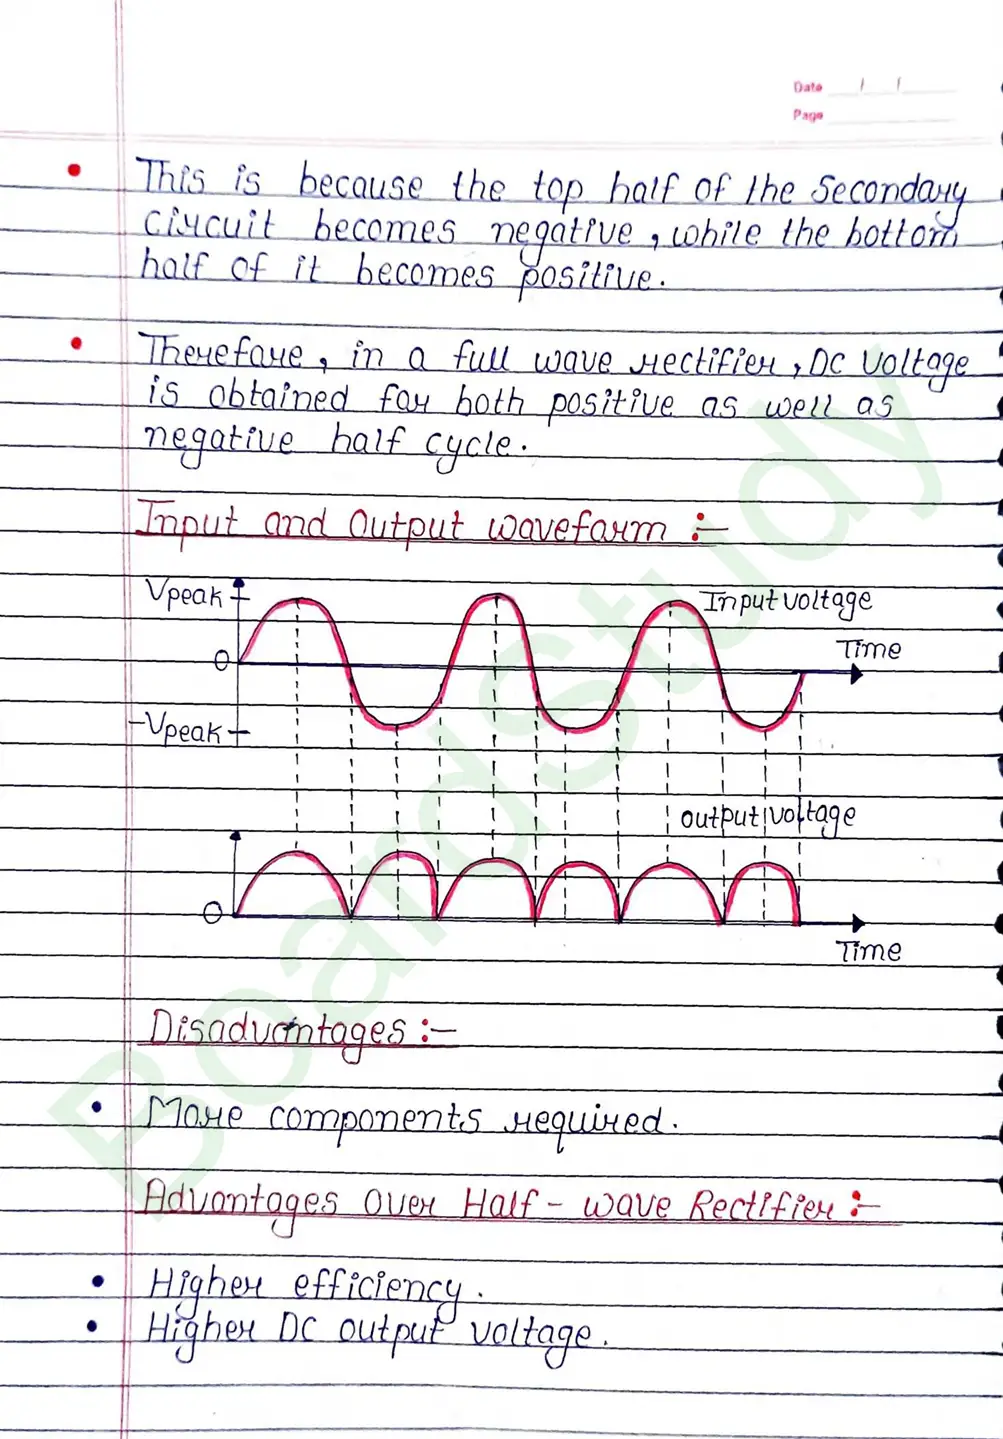 Date / /
Page
This is because the top half of the Secondary
circuit becomes negative, while the bottom
half of it becomes positive.
Therefore, in a full wave rectifier, DC Voltage
is obtained for both positive as well as
negative half cycle.
Input and Output waveform :-
Vpeak
Input voltage
Time
0
-Vpeak
output voltage
0
Time
Disadvantages :-
More components required.
Advantages Over Half - wave Rectifier :-
Higher efficiency.
Higher DC output voltage.
BoardStudy